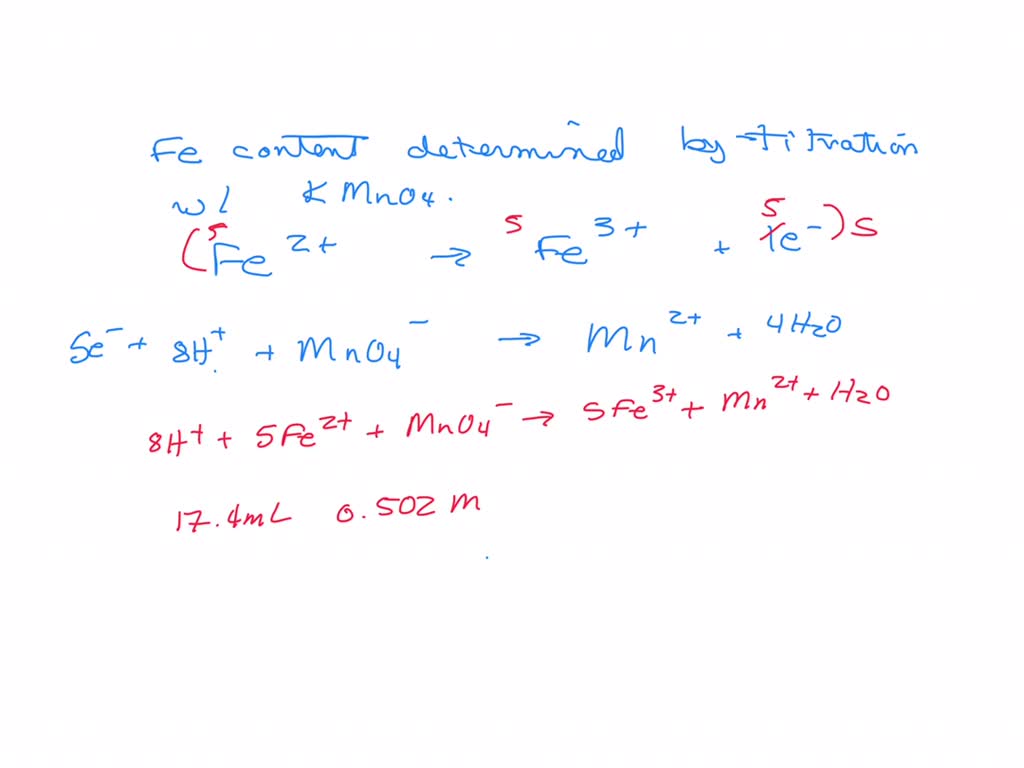 Fe content determined by titration
w/ KMnO4.
(5Fe²⁺ → 5Fe³⁺ + 5 1e⁻)5
5e⁻ + 8H⁺ + MnO4⁻ → Mn²⁺ + 4H2O
8H⁺ + 5Fe²⁺ + MnO4⁻ → 5Fe³⁺ + Mn²⁺ + H2O
17.4mL 0.502 M